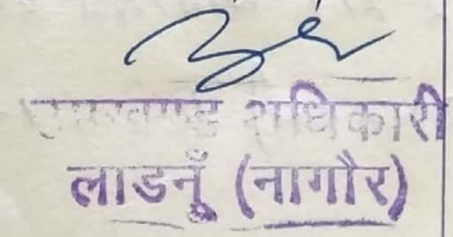 उपखण्ड अधिकारी
लाडनूँ (नागौर)